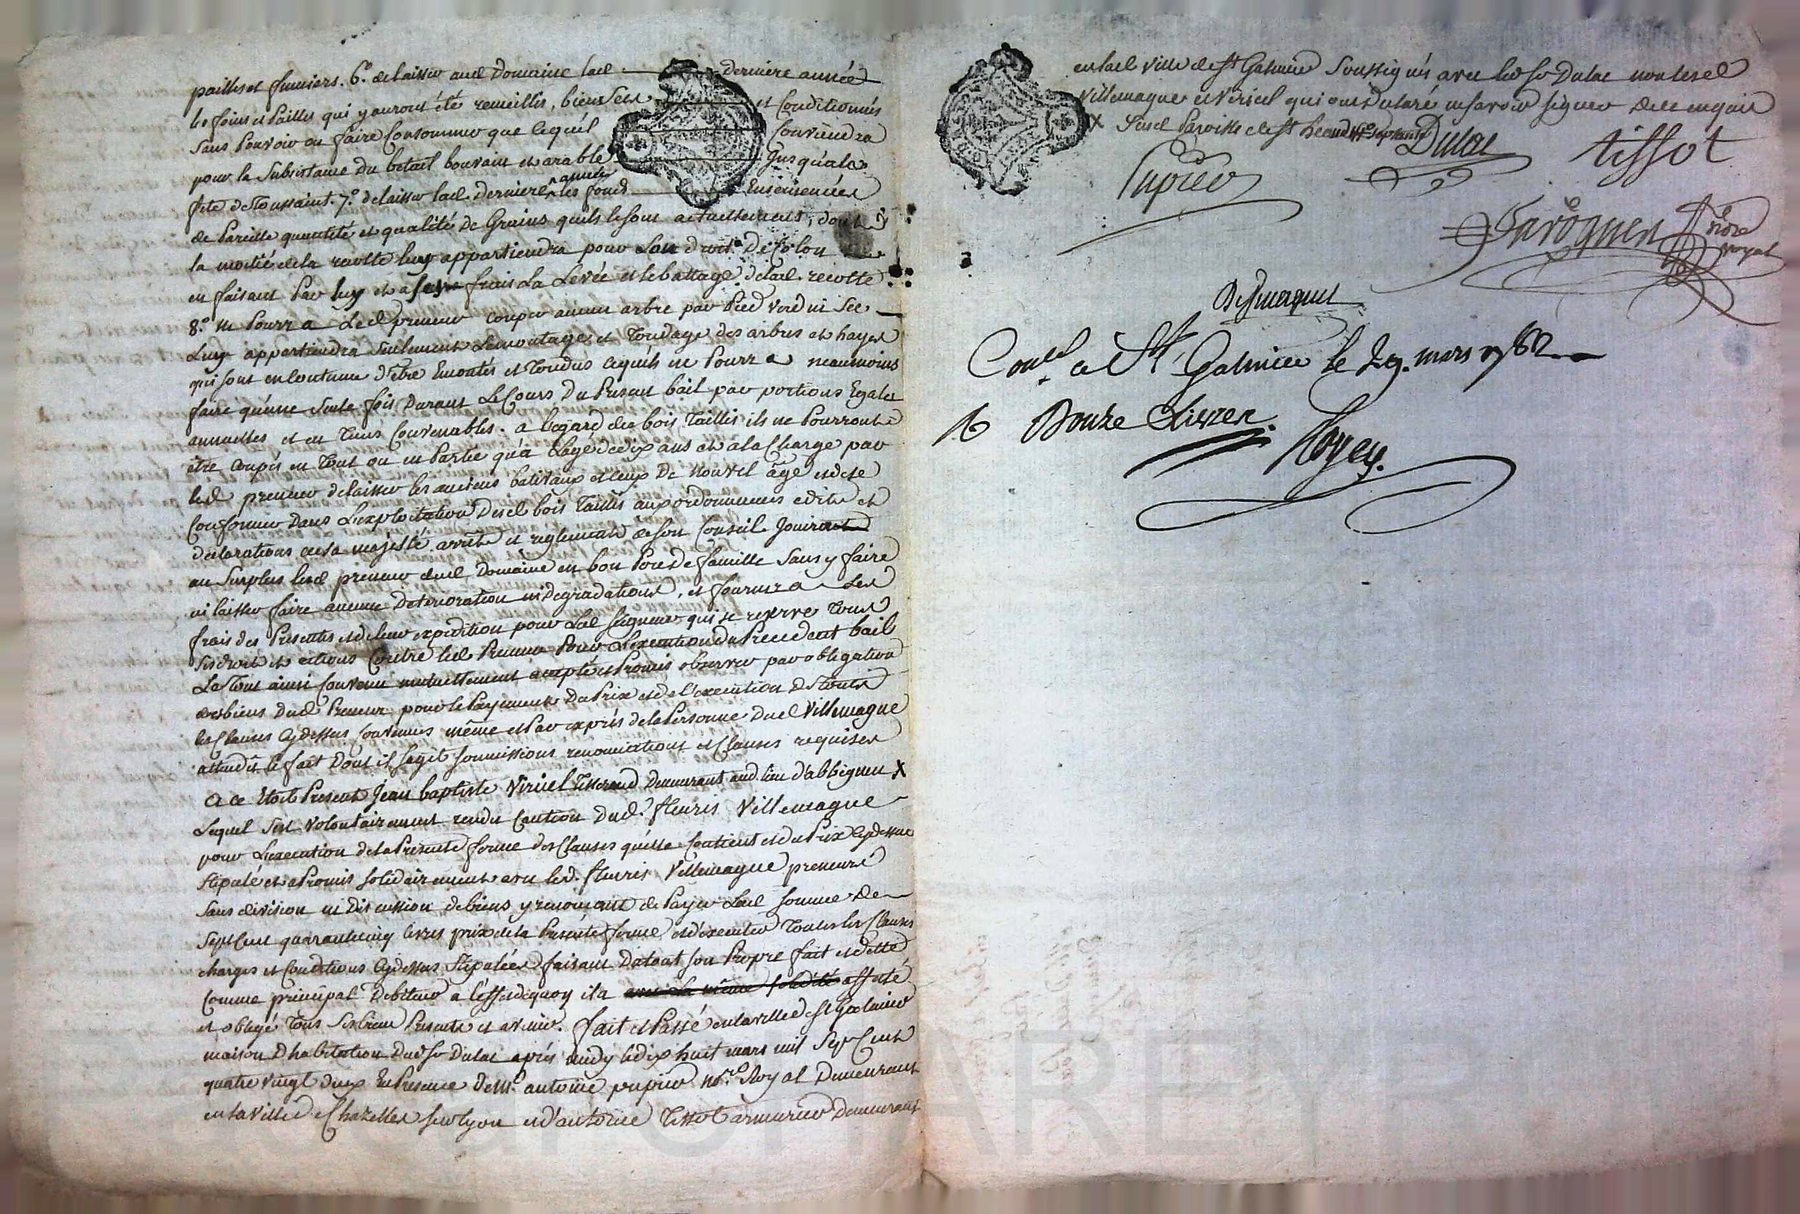 pailles et fumiers. 6.° de laisser aud Domaine lad. derniere année
les foins et Pailles qui y auront été recueillis, bien secs et Conditionnés
sans Pouvoir en faire Consommer que ce qu'il Conviendra
pour la Subsistance du betail bouvant et arable Jusqu'a la
fete de Toussaint. 7.° de laisser lad. derniere année les fonds Ensemencés
de Pareille quantité et qualité de Grains qu'ils le sont actuellement, dont
la moitié de la recolte luy appartiendra pour son droit de Colon
en faisant Par luy et a ses frais La Levée et le battage de lad. recolte
8.° ne Pourra Led preneur couper aucun arbre par Pied verd ni Sec
Luy appartiendra seulement L'emontage et Tondage des arbres et hayes
qui sont en coutume d'être Emontés et Tondus ce qu'il ne Pourra neanmoins
faire qu'une seule fois Durant Le Cours Du Present bail par portions Egales
annuelles et en tems Convenables. a l'egard des bois Taillis ils ne Pourront
être Coupés en Tout ou en Partie qu'a L'age de dix ans et a la Charge par
led preneur de laisser les anciens balivaux et ceux De nouvel âge et de se
Conformer Dans L'exploitation desd bois Taillis aux ordonnances edits et
declarations de sa majesté arrets et reglements de son Conseil Jouira
au Surplus led preneur dud Domaine en bon Pere de famille Sans y faire
ni laisser faire aucune Deterioration ni degradations, et fournira Les
frais des Presentes et de leur expedition pour Led Seigneur qui se reserve Tous
ses droits et actions Contre led Preneur Pour L'execution du Precedent bail
Le Tout ainsi Convenu mutuellement accepté et Promis observer par obligation
des biens Dud Preneur pour le Payement Du Prix et de l'execution de Toutes
les Clauses Cydessus Convenues même et Par exprés de la Personne Dud Villemagne
attendu le fait Dont il s'agit soumissions renonciations et Clauses requises
a ce Etoit Present Jean baptiste Viricel Tisserand Demeurant aud. lieu d'abbignieu X
Lequel s'est Volontairement rendu Caution Dud. fleuris Villemagne
pour L'execution de la Presente ferme des Clauses qu'elle Contient et du Prix Cydessus
stipulé et a Promis solidairement avec led. fleuris Villemagne preneur
Sans division ni Discussion de biens y renonçant de Payer Lad somme de
Sept Cent quarante cinq livres prix de la Presente ferme et d'executer Toutes les Clauses
charges et Conditions Cydessus Stipulées faisant Du tout son Propre fait et dette
Comme principal Debiteur a l'effet de quoy il a avec la même solidité affecté
et obligé Tous ses biens Presents et avenir. fait et Passé en la ville de St Galmier
maison D'habitation Dud Sr Dulac aprés midy le dix huit mars mil Sept Cent
quatre vingt deux En Presence de Me antoine pupier nore Royal Demeurant
en la ville de Chazelles sur lyon et d'antoine Tissot armurier demeurant
en lad ville de St Galmier Soussignés avec led Sr Dulac non lesd
Villemagne et Viricel qui ont declaré ne savoir signer de ce enquis
X Susd Paroisse de St heand
Dulac
Tissot
Pupier
nore royal
Conlé a St Galmier le 29. mars 1782
R Douze Livres.
Royer.